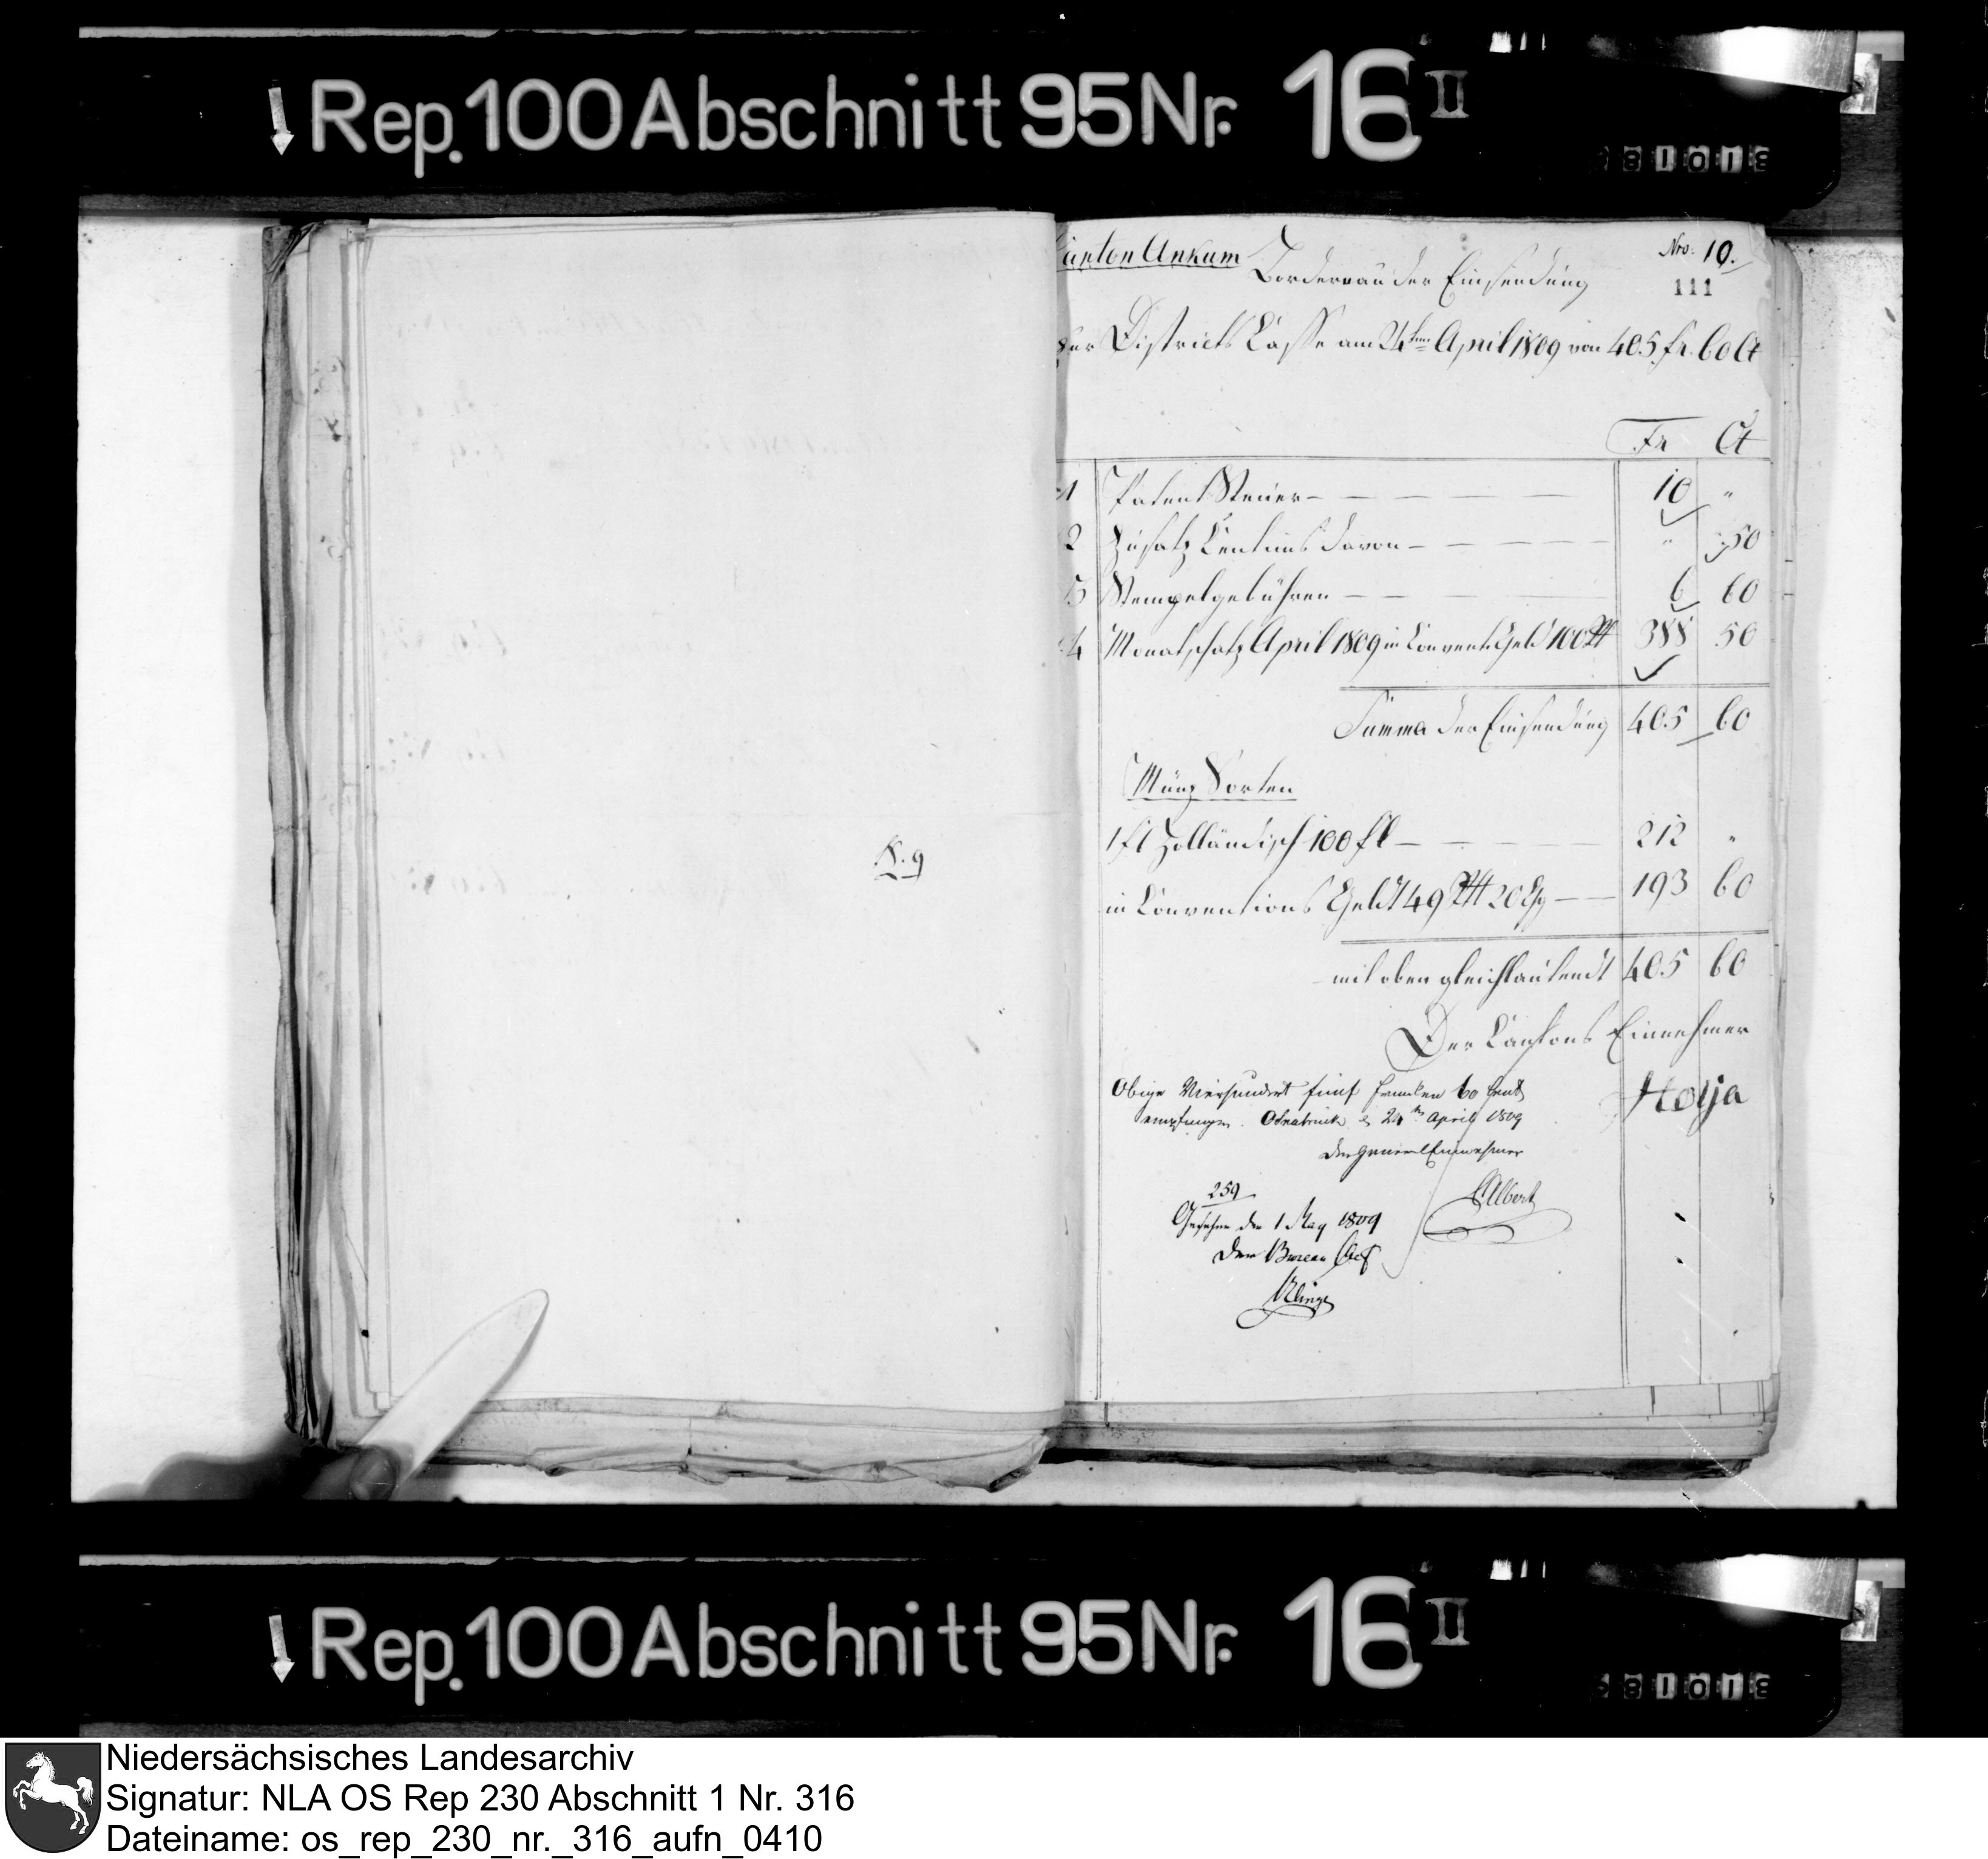 Rep. 100 Abschnitt 95 Nr. 16 II
K. 9
Canton Ankum
Nro. 10.
Bordereau der Einsendung
111
zur Districts Casse am 24ten April 1809 von 405 fr. 60 Ct
Fr Ct
1 Patent Steuer — — — — — 10 "
2 Zusatz Centims davon — — — — " 50
3 Stempelgebühren — — — 6 60
4 Monatschatz April 1809 in Convent. Geld 100 Rt 388 50
Summa der Einsendung 405 60
Münz Sorten
1 fl Holländisch 100 fl — — — — 212 "
in Conventions Geldt 49 Rt 20 Gg — — 193 60
mit oben gleichlautendt 405 60
Der Cantons Einnehmer
Hoija
Obige Vierhundert fünf Franken 60 Cent
empfangen. Osnabrück d 24ten April 1809
Der General Einnehmer
Albert
259
Gesehen den 1 May 1809
Der Bureau Chef
Klinge
Rep. 100 Abschnitt 95 Nr. 16 II
Niedersächsisches Landesarchiv
Signatur: NLA OS Rep 230 Abschnitt 1 Nr. 316
Dateiname: os_rep_230_nr._316_aufn_0410